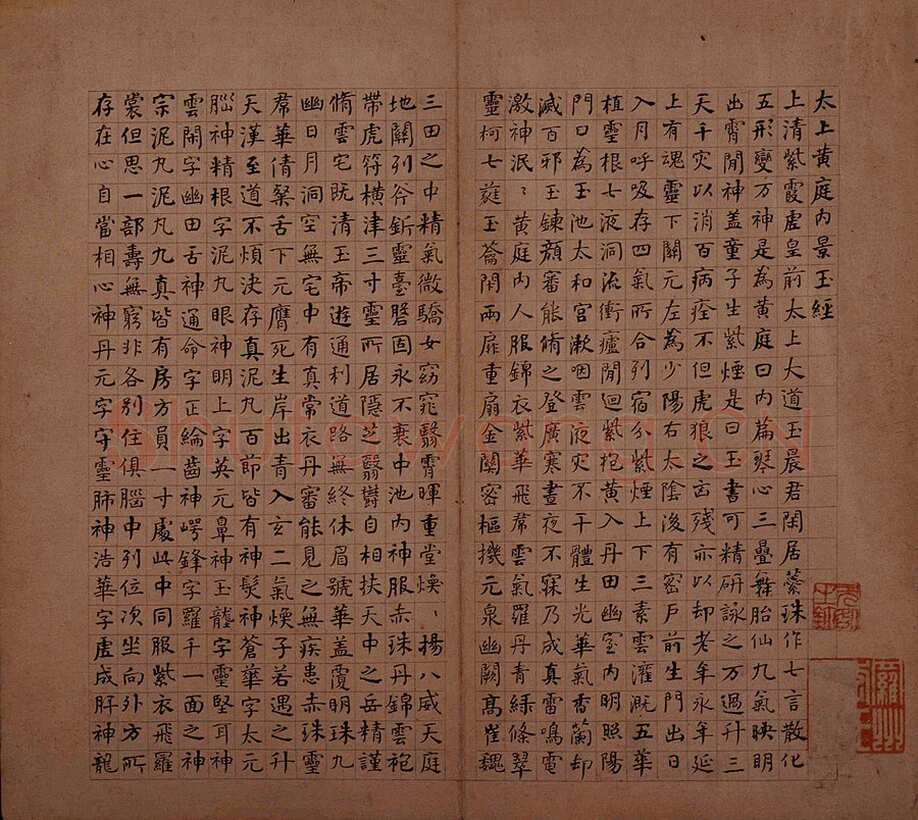 太上黄庭内景玉經
上清紫霞虛皇前太上大道玉晨君閑居蘂珠作七言散化
五形變万神是為黄庭曰内篇琴心三疊舞胎仙九氣映明
出霄閒神盖童子生紫煙是曰玉書可精研詠之万過升三
天千灾以消百病痊不但虎狼之凶殘亦以却老年永年延
上有魂靈下關元左為少陽右太陰後有密戶前生門出日
入月呼吸存四氣所合列宿分紫煙上下三素雲灌溉五華
植靈根七液洞流衝廬閒迴紫抱黄入丹田幽室内明照陽
門口為玉池太和宮漱咽靈液灾不干體生光華氣香蘭却
滅百邪玉鍊顏審能脩之登廣寒晝夜不寐乃成真雷鳴電
激神泯〻黄庭内人服錦衣紫華飛帬雲氣羅丹青緑條翠
靈柯七蕤玉籥閉兩扉重扇金關密樞機元泉幽闕髙崔巍
三田之中精氣微驕女窈窕翳霄暉重堂煥〻揚八威天庭
地關列斧釿靈臺盤固永不衰中池内神服赤珠丹錦雲袍
帶虎符横津三寸靈所居隱芝翳欝自相扶天中之岳精謹
脩雲宅既清玉帝遊通利道路無終休眉號華盖覆明珠九
幽日月洞空無宅中有真常衣丹審能見之無疾患赤珠靈
帬華倩粲舌下元膺死生岸出青入玄二氣煥子若遇之升
天漢至道不煩決存真泥丸百節皆有神髮神蒼華字太元
腦神精根字泥丸眼神明上字英元鼻神玉龍字靈堅耳神
雲閑字幽田舌神通命字正綸齒神崿鋒字羅千一面之神
宗泥丸泥丸九真皆有房方員一寸處此中同服紫衣飛羅
裳但思一部壽無窮非各別住俱腦中列位次坐向外方所
存在心自當相心神丹元字守靈肺神浩華字虛成肝神龍